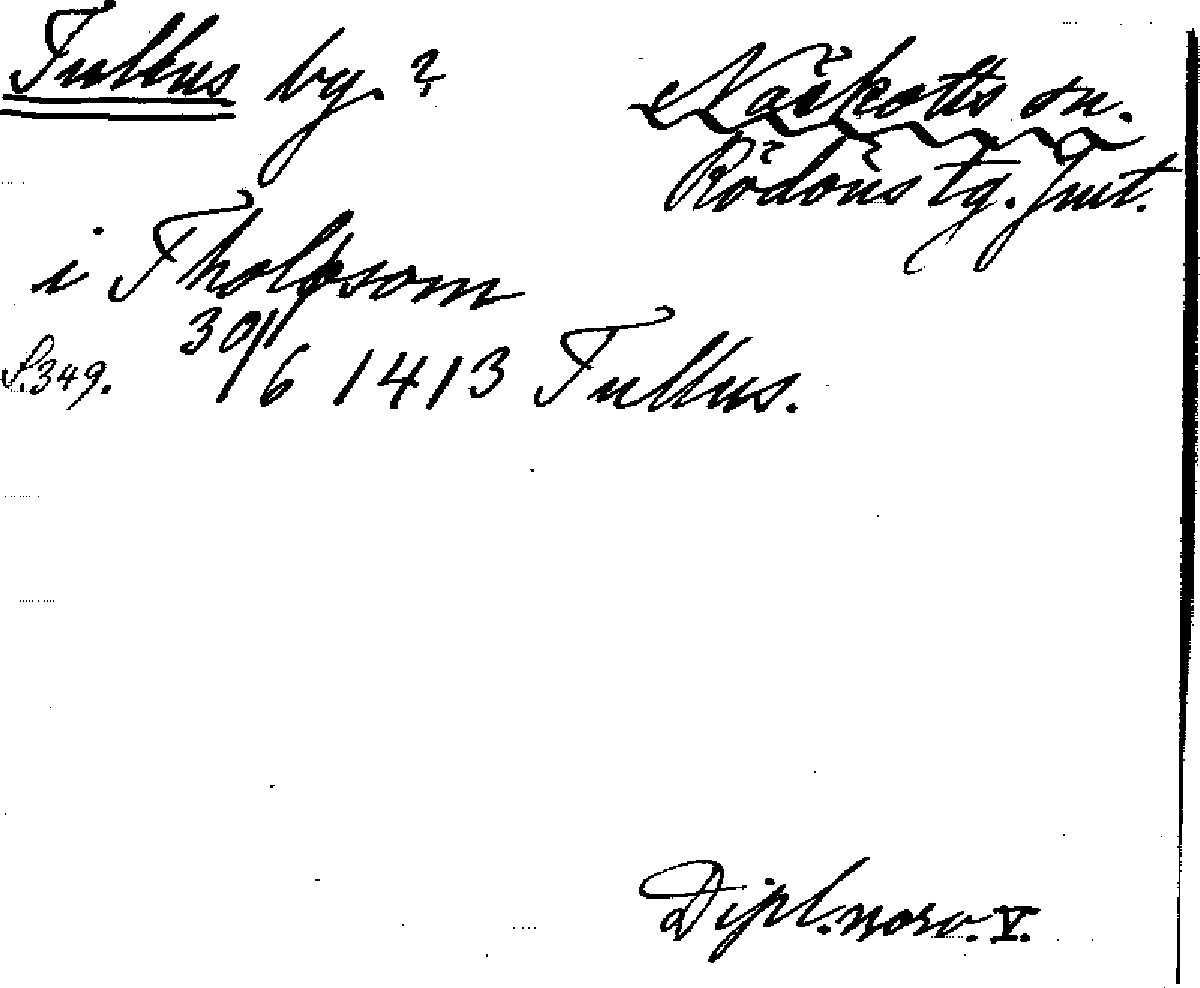 Tullus by. ?
Näskotts sn.
Rödöns tg. Jmt.
i Tholpsom
S. 349. 30/6 1413 Tullus.
Dipl. norv. V.